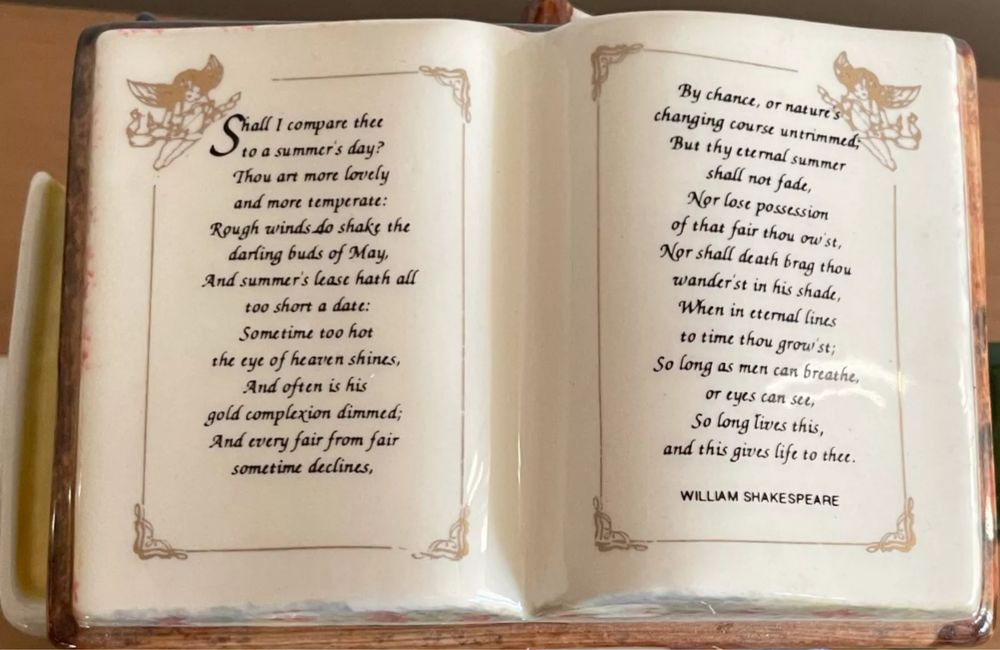 Shall I compare thee
to a summer's day?
Thou art more lovely
and more temperate:
Rough winds do shake the
darling buds of May,
And summer's lease hath all
too short a date:
Sometime too hot
the eye of heaven shines,
And often is his
gold complexion dimmed;
And every fair from fair
sometime declines,
By chance, or nature's
changing course untrimmed;
But thy eternal summer
shall not fade,
Nor lose possession
of that fair thou ow'st,
Nor shall death brag thou
wander'st in his shade,
When in eternal lines
to time thou grow'st;
So long as men can breathe,
or eyes can see,
So long lives this,
and this gives life to thee.
WILLIAM SHAKESPEARE